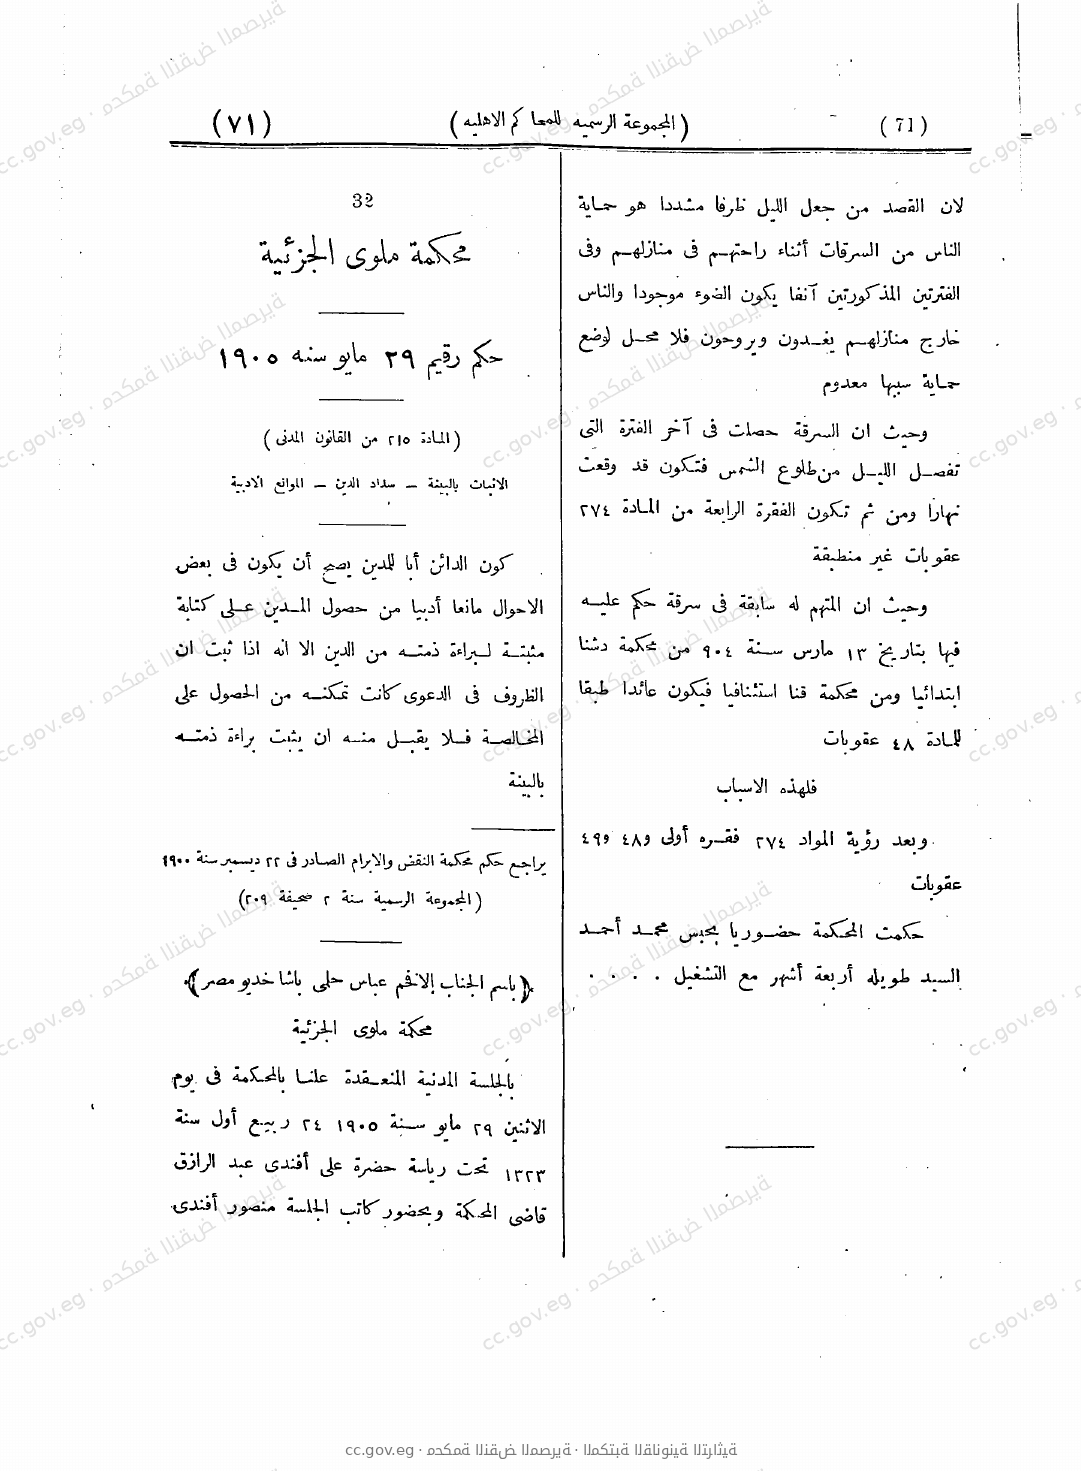 (71)
(المجموعة الرسمية للمحاكم الاهليه)
(٧١)
لان القصد من جعل الليل ظرفا مشددا هو حماية
الناس من السرقات أثناء راحتهم فى منازلهم وفى
الفترتين المذكورتين آنفا يكون الضوء موجودا والناس
خارج منازلهم يغدون ويروحون فلا محل لوضع
حماية سببها معدوم
وحيث ان السرقة حصلت فى آخر الفترة التى
تفصل الليل من طلوع الشمس فتكون قد وقعت
نهارا ومن ثم تكون الفقرة الرابعة من المادة ٢٧٤
عقوبات غير منطبقة
وحيث ان المتهم له سابقة فى سرقة حكم عليه
فيها بتاريخ ١٣ مارس سنة ٩٠٤ من محكمة دشنا
ابتدائيا ومن محكمة قنا استئنافيا فيكون عائدا طبقا
للمادة ٤٨ عقوبات
فلهذه الاسباب
وبعد رؤية المواد ٢٧٤ فقره أولى و٤٨ و٤٩
عقوبات
حكمت المحكمة حضوريا بحبس محمد أحمد
السيد طويله أربعة أشهر مع التشغيل . . . .
32
محكمة ملوى الجزئية
حكم رقيم ٢٩ مايو سنه ١٩٠٥
(المادة ٢١٥ من القانون المدنى)
الاثبات بالبينة – سداد الدين – الموانع الادبية
كون الدائن أبا للمدين يصح أن يكون فى بعض
الاحوال مانعا أدبيا من حصول المدين على كتابة
مثبتة لبراءة ذمته من الدين الا انه اذا ثبت ان
الظروف فى الدعوى كانت تمكنه من الحصول على
المخالصة فلا يقبل منه ان يثبت براءة ذمته
بالبينة
يراجع حكم محكمة النقض والابرام الصادر فى ٢٢ ديسمبر سنة ١٩٠٠
(المجموعة الرسمية سنة ٢ صحيفة ٢٠٩)
(باسم الجناب الافخم عباس حلمى باشا خديو مصر)
محكمة ملوى الجزئية
بالجلسة المدنية المنعقدة علنا بالمحكمة فى يوم
الاثنين ٢٩ مايو سنة ١٩٠٥ ٢٤ ربيع أول سنة
١٣٢٣ تحت رياسة حضرة على أفندى عبد الرازق
قاضى المحكمة وبحضور كاتب الجلسة منصور أفندى
cc.gov.eg · محكمة النقض المصرية · المكتبة القانونية التراثية